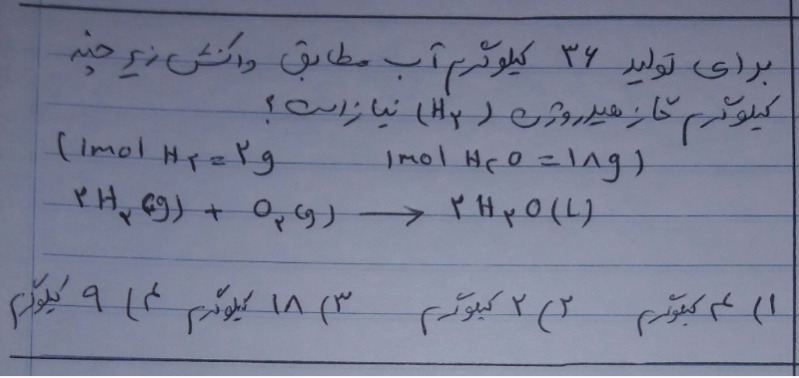 برای تولید ۳۶ کیلوگرم آب مطابق واکنش زیر چند
کیلوگرم گاز هیدروژن (H۲) نیاز است؟
(1mol H۲ = ۲g 1mol H۲O = ۱۸g)
۲H۲(g) + O۲(g) → ۲H۲O(L)
۱) ۴ کیلوگرم ۲) ۲ کیلوگرم ۳) ۱۸ کیلوگرم ۴) ۹ کیلوگرم